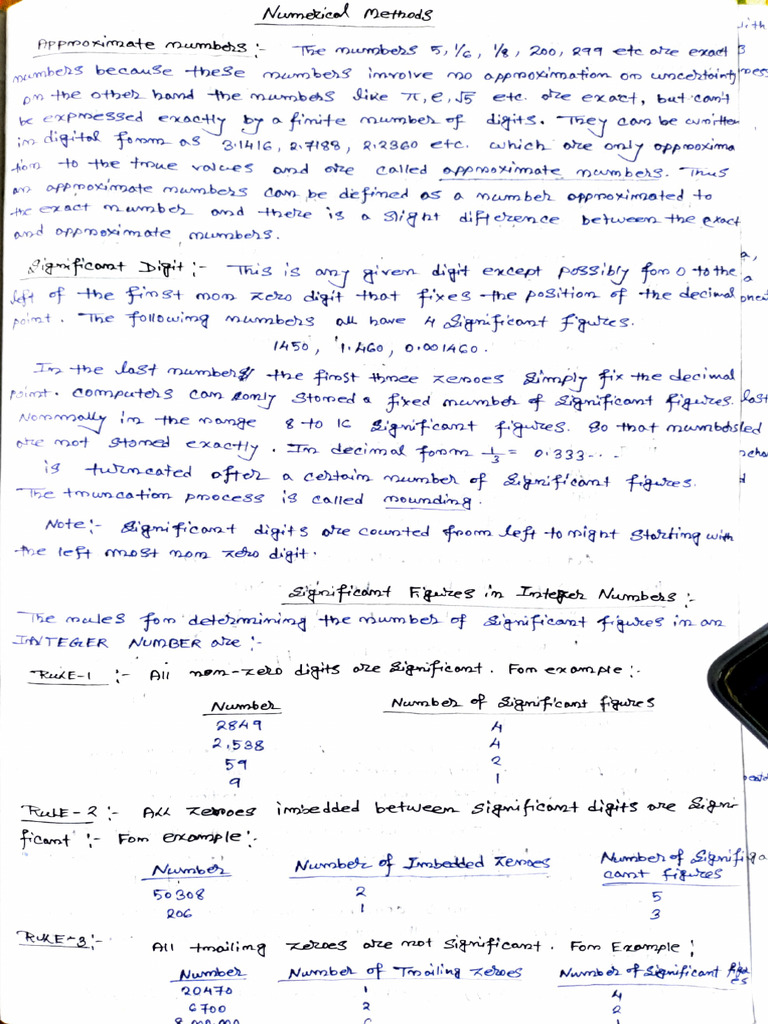 Numerical Methods
Approximate numbers :- The numbers 5, 1/6, 1/8, 200, 299 etc are exact
numbers because these numbers involve no approximation on uncertainty
on the other hand the numbers like π, e, √5 etc. are exact, but can't
be expressed exactly by a finite number of digits. They can be written
in digital form as 3.1416, 2.7188, 2.2360 etc. which are only approxima
tion to the true values and are called approximate numbers. Thus
an approximate numbers can be defined as a number approximated to
the exact number and there is a slight difference between the exact
and approximate numbers.
Significant Digit :- This is any given digit except possibly for 0 to the
left of the first non zero digit that fixes the position of the decimal
point. The following numbers all have 4 significant figures.
1450, 1.460, 0.001460.
In the last numbers the first three zeroes simply fix the decimal
point. computers can only stored a fixed number of significant figures.
Normally in the range 8 to 16 significant figures. So that numbers
are not stored exactly. In decimal form 1/3 = 0.333---
is turncated after a certain number of significant figures.
The truncation process is called rounding.
Note :- Significant digits are counted from left to right starting with
the left most non zero digit.
Significant Figures in Integer Numbers :-
The rules for determining the number of significant figures in an
INTEGER NUMBER are :-
RULE-1 :- All non-zero digits are significant. For example :-
Number Number of Significant figures
2849 4
2,538 4
59 2
9 1
RULE-2 :- ALL zeroes imbedded between significant digits are signi-
ficant :- For example :-
Number Number of Imbedded zeroes Number of Signifi
cant figures
50308 2 5
206 1 3
RULE-3 :- All trailing zeroes are not significant. For Example ;
Number Number of Trailing zeroes Number of Significant figu
es
20470 1 4
6700 2 2